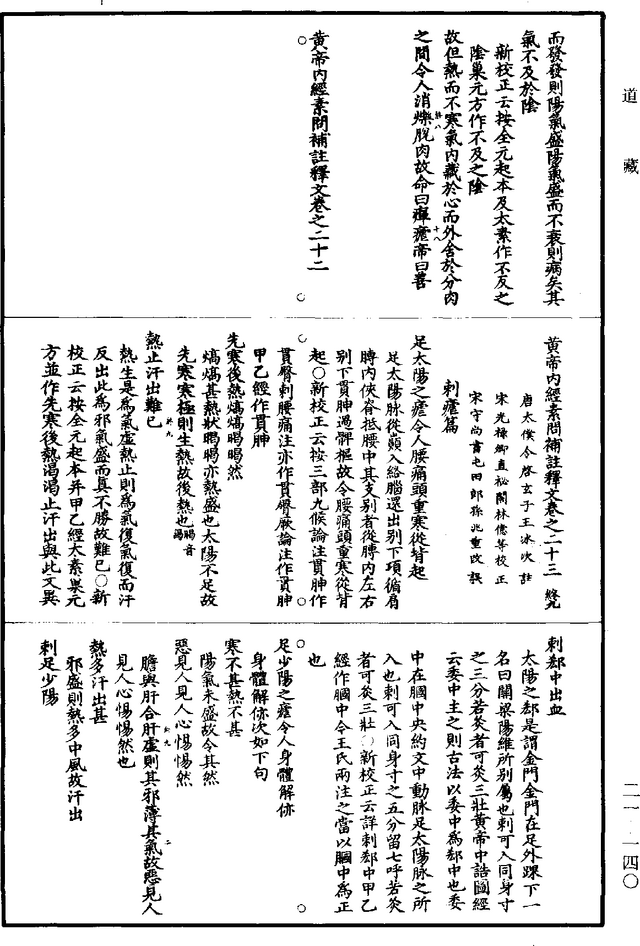 道藏
而發發則陽氣盛陽氣盛而不衰則病矣其
氣不及於陰
新校正云按全元起本及太素作不反之
陰巢元方作不及之陰
故但熱而不寒氣內藏於心而外舍於分肉
之間令人消爍脫肉故命曰癉瘧帝曰善
黃帝內經素問補註釋文卷之二十二
黃帝內經素問補註釋文卷之二十三
唐太僕令啓玄子王冰次註
宋光祿卿直祕閣林億等校正
宋守尚書屯田郎孫兆重改誤
刺瘧篇
足太陽之瘧令人腰痛頭重寒從背起
足太陽脉從巔入絡腦還出別下項循肩
膊內俠脊抵腰中其支別者從膊內左右
別下貫胂過髀樞故令腰痛頭重寒從背
起○新校正云按三部九候論注貫胂作
貫臀刺腰痛注亦作貫臀厥論注作貫胂
甲乙經作貫胂
先寒後熱熇熇暍暍然
熇熇甚熱狀暍暍亦熱盛也太陽不足故
先寒寒極則生熱故後熱也
熱止汗出難已
熱生是為氣虛熱止則為氣復氣復而汗
反出此為邪氣盛而真不勝故難已○新
校正云按全元起本并甲乙經太素巢元
方並作先寒後熱渴渴止汗出與此文異
刺郄中出血
太陽之郄是謂金門金門在足外踝下一
名曰關梁陽維所別屬也刺可入同身寸
之三分若灸者可灸三壯黃帝中誥圖經
云委中主之則古法以委中為郄中也委
中在膕中央約文中動脉足太陽脉之所
入也刺可入同身寸之五分留七呼若灸
者可灸三壯○新校正云詳刺郄中甲乙
經作膕中今王氏兩注之當以膕中為正
也
足少陽之瘧令人身體解㑊
身體解㑊次如下句
寒不甚熱不甚
陽氣未盛故令其然
惡見人見人心惕惕然
膽與肝合肝虛則其邪薄其氣故惡見人
見人心惕惕然也
熱多汗出甚
邪盛則熱多中風故汗出
刺足少陽
二一·一四〇